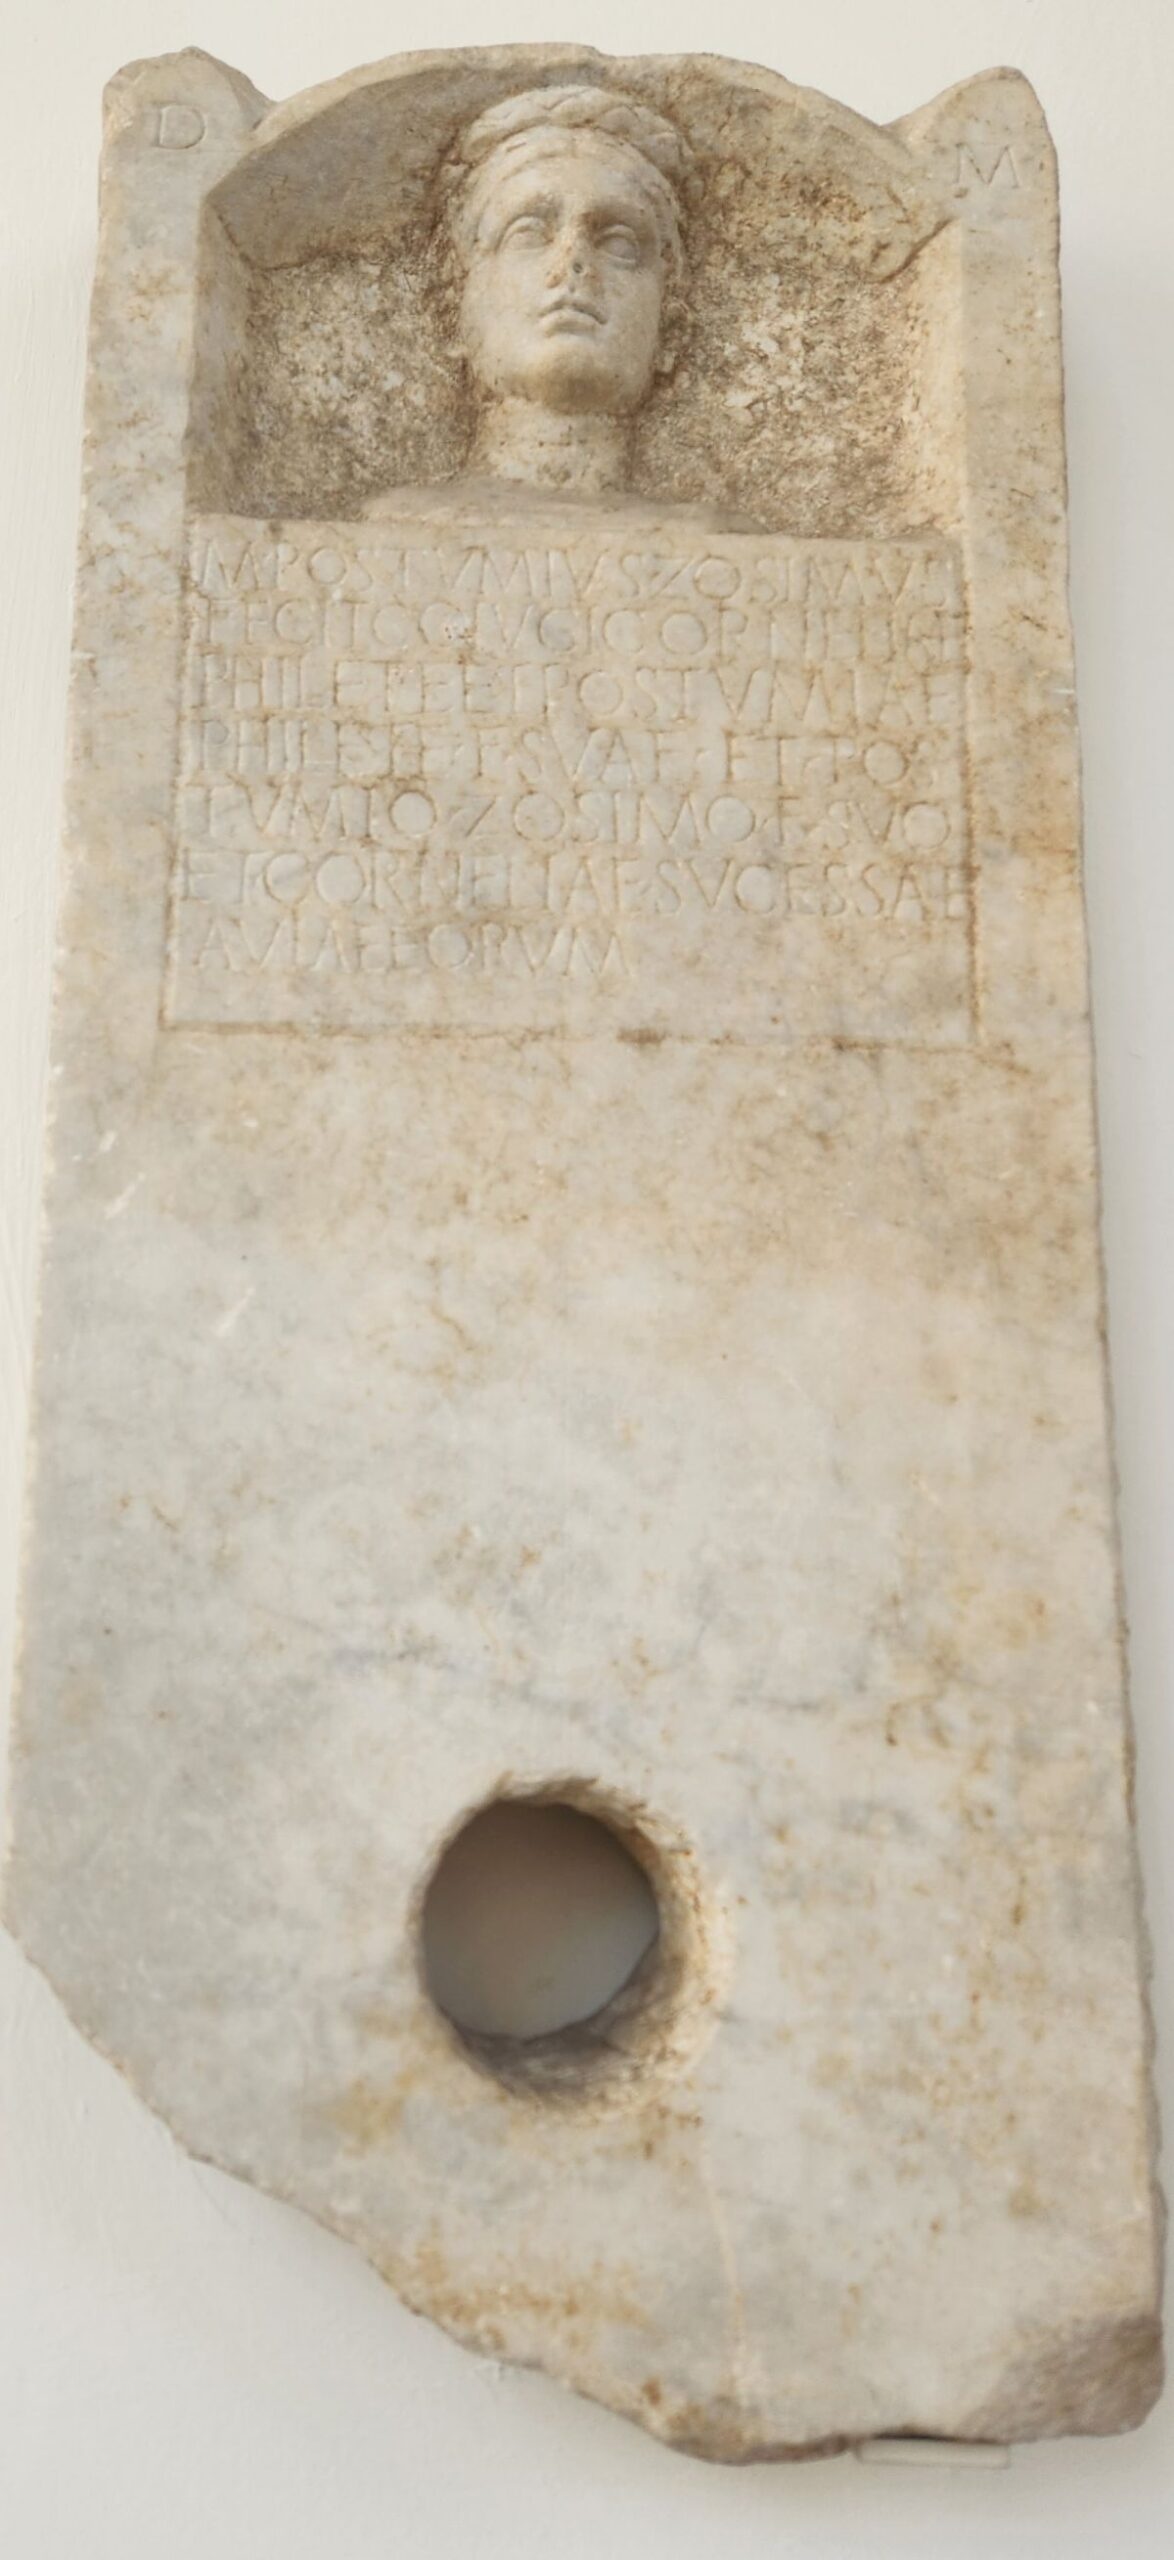 D M
M·POSTVMIVS·ZOSIMVS
FECIT COIVGI CORNELIAE
PHILETE ET POSTVMIAE
PHILETE·F·SVAE·ET·POS
TVMIO·ZOSIMO·F·SVO
ET·CORNELIAE·SVCESSAE
AVIAE EORVM